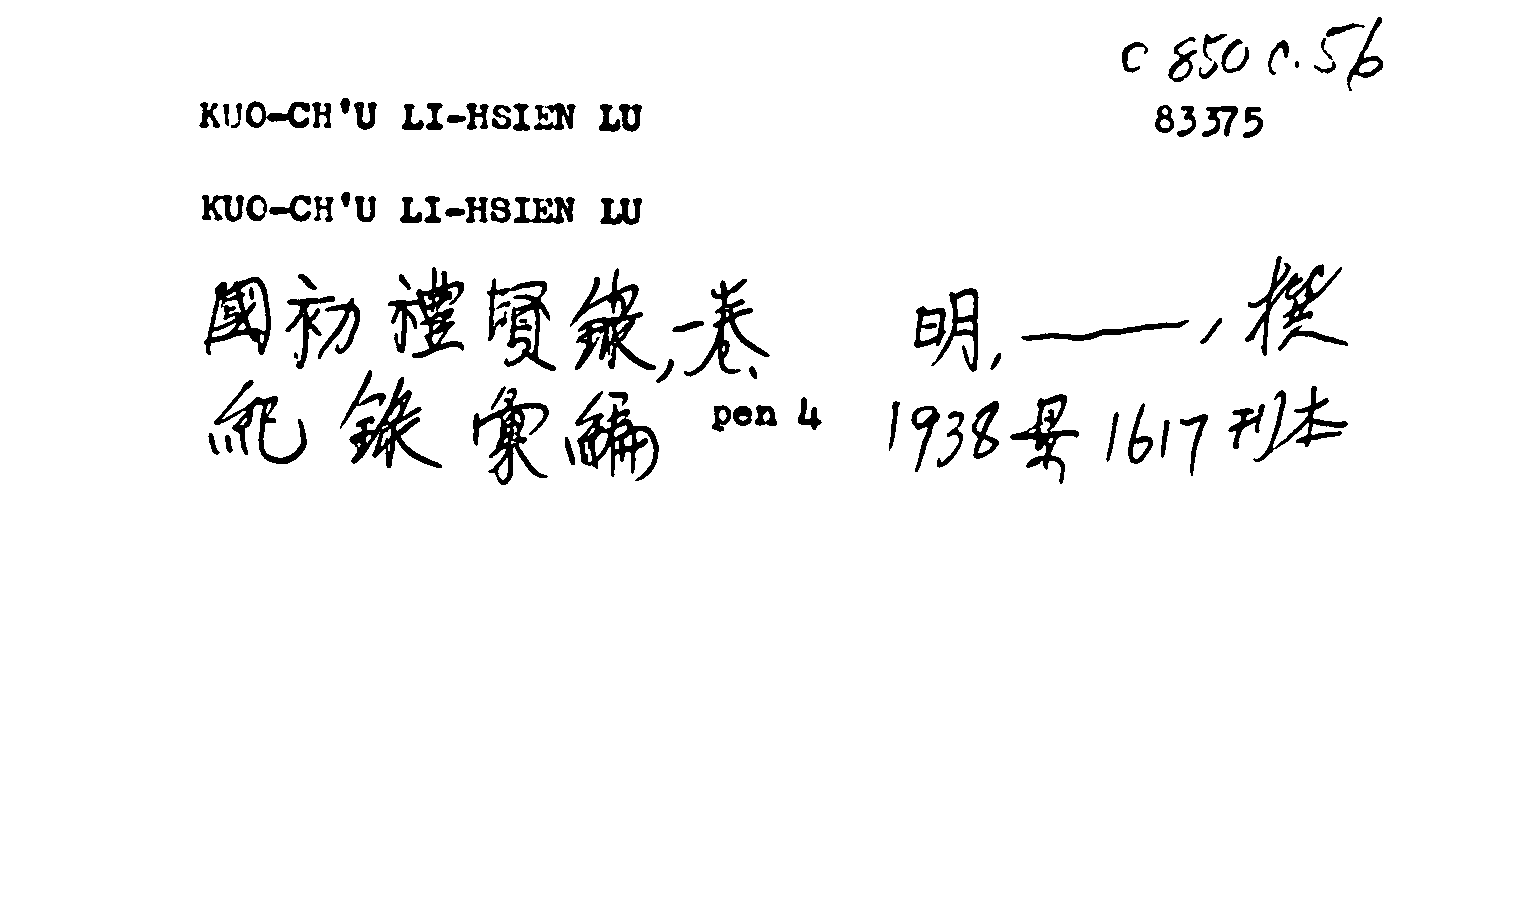 C 850 C. 56
KUO-CH'U LI-HSIEN LU
83375
KUO-CH'U LI-HSIEN LU
國初禮賢錄,一卷、 明,——,撰
紀錄彙編 pen 4 1938景1617刊本